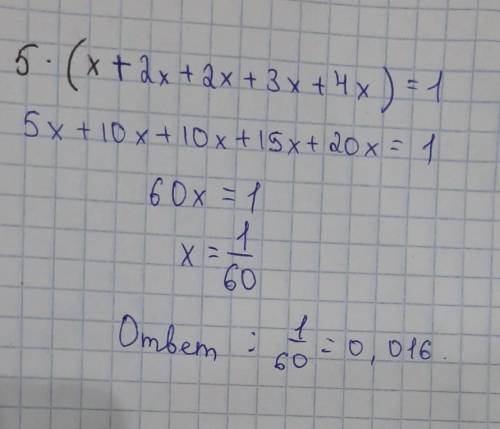 5 · (x + 2x + 2x + 3x + 4x) = 1
5x + 10x + 10x + 15x + 20x = 1
60x = 1
x = 1/60
Ответ : 1/60 = 0,016.